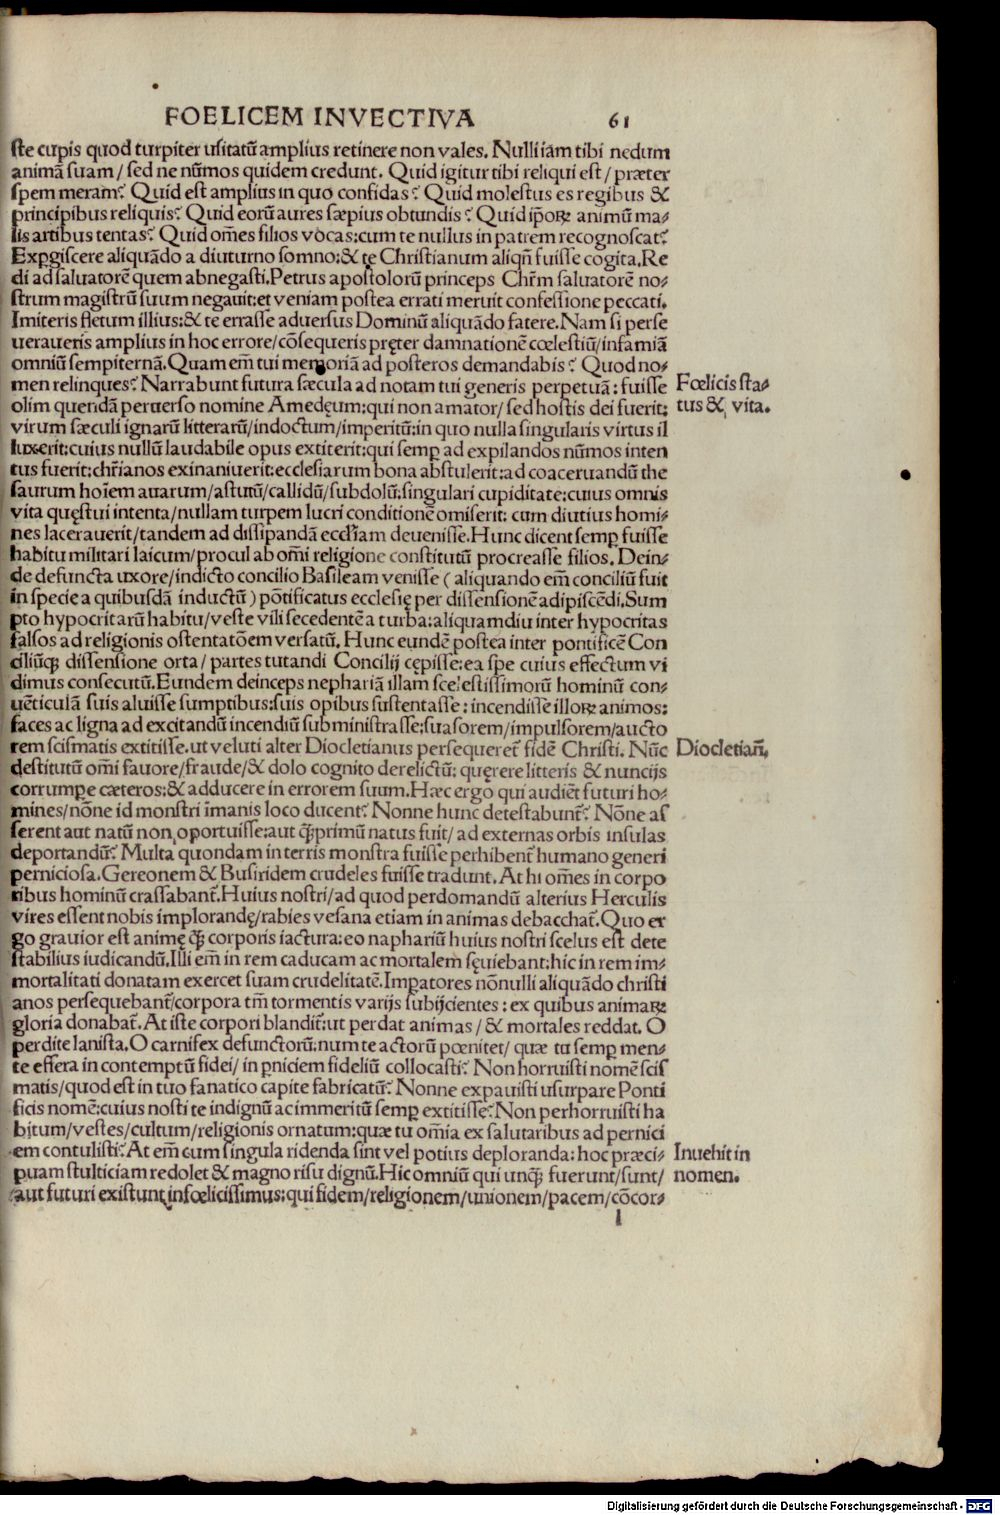 FOELICEM INVECTIVA 61
ste cupis quod turpiter usitatũ amplius retinere non vales. Nulli iam tibi nedum
animã suam / sed ne nũmos quidem credunt. Quid igitur tibi reliqui est / præter
spem meram? Quid est amplius in quo confidas? Quid molestus es regibus &
principibus reliquis? Quid eorũ aures sæpius obtundis? Quid ip̃oꝝ animũ ma-
lis artibus tentas? Quid om̃es filios vocas: cum te nullus in patrem recognoscat?
Exp̱giscere aliquãdo a diuturno somno: & te Christianum aliqñ fuisse cogita. Re
di ad saluatorẽ quem abnegasti. Petrus apostolorũ princeps Chr̃m saluatorẽ no-
strum magistrũ suum negauit: et veniam postea errati meruit confessione peccati.
Imiteris fletum illius: & te errasse aduersus Dominũ aliquãdo fatere. Nam si perse
ueraueris amplius in hoc errore / cõsequeris pręter damnationẽ cœlestiũ / infamiã
omniũ sempiternã. Quam em̃ tui memoriã ad posteros demandabis? Quod no-
men relinques? Narrabunt futura sæcula ad notam tui generis perpetuã: fuisse
Fœlicis sta-
olim quendã peruerso nomine Amedęum: qui non amator / sed hostis dei fuerit:
tus & vita.
virum sæculi ignarũ litterarũ / indoctum / imperitũ: in quo nulla singularis virtus il
luxerit: cuius nullũ laudabile opus extiterit: qui semp̱ ad expilandos nũmos inten
tus fuerit: chr̃ianos exinaniuerit: ecclesiarum bona abstulerit: ad coaceruandũ the
saurum hoĩem auarum / astutũ / callidũ / subdolũ: singulari cupiditate: cuius omnis
vita quęstui intenta / nullam turpem lucri conditionẽ omiserit: cum diutius homi-
nes lacerauerit / tandem ad dissipandã eccl̃iam deuenisse. Hunc dicent semp̱ fuisse
habitu militari laicum / procul ab om̃i religione constitutũ procreasse filios. Dein-
de defuncta uxore / indicto concilio Basileam venisse (aliquando em̃ conciliũ fuit
in specie a quibusdã inductũ) põtificatus ecclesię per dissensionẽ adipiscẽdi. Sum
pto hypocritarũ habitu / veste vili secedentẽ a turba: aliquamdiu inter hypocritas
falsos ad religionis ostentatõem versatũ. Hunc eundẽ postea inter pontificẽ Con
ciliũq̃ dissensione orta / partes tutandi Concilij cępisse: ea spe cuius effectum vi
dimus consecutũ. Eundem deinceps nephariã illam scelestissimorũ hominũ con-
uẽticulã suis aluisse sumptibus: suis opibus sustentasse: incendisse illoꝝ animos:
faces ac ligna ad excitandũ incendiũ subministrasse: suasorem / impulsorem / aucto
rem scismatis extitisse. ut veluti alter Diocletianus persequeret̃ fidẽ Christi. Nũc
Diocletiañ.
destitutũ om̃i fauore / fraude / & dolo cognito derelictũ: quęrere litteris & nuncijs
corrump̱e cæteros: & adducere in errorem suum. Hæc ergo qui audiẽt futuri ho-
mines / nõne id monstri ĩmanis loco ducent? Nonne hunc detestabunt̃? Nõne as
serent aut natũ non oportuisse: aut q̃primũ natus fuit / ad externas orbis insulas
deportandũ? Multa quondam in terris monstra fuisse perhibent̃ humano generi
perniciosa. Gereonem & Busiridem crudeles fuisse tradunt. At hi om̃es in corpo
ribus hominũ crassabant̃. Huius nostri / ad quod perdomandũ alterius Herculis
vires essent nobis implorandę / rabies vesana etiam in animas debacchat̃. Quo er
go grauior est animę q̃ corporis iactura: eo naphariũ huius nostri scelus est dete
stabilius iudicandũ. Illi em̃ in rem caducam ac mortalem sęuiebant: hic in rem im-
mortalitati donatam exercet suam crudelitatẽ. Imp̱atores nõnulli aliquãdo christi
anos persequebant̃ / corpora tm̃ tormentis varijs subijcientes: ex quibus animaꝝ
gloria donabat̃. At iste corpori blandit̃: ut perdat animas / & mortales reddat. O
perdite lanista. O carnifex defunctorũ: num te actorũ pœnitet / quæ tu semp̱ men-
te effera in contemptũ fidei / in p̱niciem fideliũ collocasti? Non horruisti nomẽ scis
matis / quod est in tuo fanatico capite fabricatũ? Nonne expauisti usurpare Ponti
ficis nomẽ: cuius nosti te indignũ ac immeritũ semp̱ extitisse? Non perhorruisti ha
bitum / vestes / cultum / religionis ornatum: quæ tu om̃ia ex salutaribus ad pernici
em contulisti? At em̃ cum singula ridenda sint vel potius deploranda: hoc præci-
Inuehit in
puam stultitiam redolet & magno risu dignũ. Hic omniũ qui unq̃ fuerunt / sunt /
nomen.
aut futuri existunt infœlicissimus: qui fidem / religionem / unionem / pacem / cõcor-
l
Digitalisierung gefördert durch die Deutsche Forschungsgemeinschaft - DFG